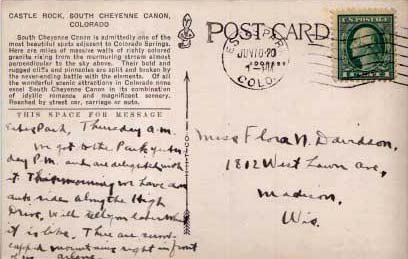 CASTLE ROCK, SOUTH CHEYENNE CANON,
COLORADO
South Cheyenne Canon is admittedly one of the
most beautiful spots adjacent to Colorado Springs.
Here are miles of massive walls of richly colored
granite rising from the murmuring stream almost
perpendicular to the sky above. Their bold and
rugged cliffs and pinnacles are split and broken by
the never-ending battle with the elements. Of all
the wonderful scenic attractions in Colorado none
excel South Cheyenne Canon in its combination
of idyllic romance and magnificent scenery.
Reached by street car, carriage or auto.
THIS SPACE FOR MESSAGE
Estes Park, Thursday a.m.
We got to the Park yester
day P.M. and are delighted with
it. This morning we have an
auto ride along the High
Drive. Will tell you later what
it is like. There are snow-
capped mountains right in front
of us.
POST CARD
COLO.
U.S. POSTAGE
Miss Flora N. Davidson,
1802 West Lawn Ave,
Madison,
Wis.